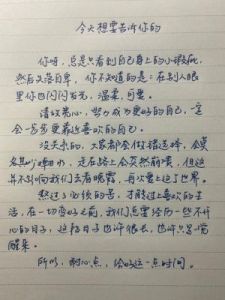 今天想要告诉你的
你呀，总是只看到自己身上的小瑕疵，
然后失落自卑，你不知道的是：在别人眼
里你也闪闪发光，温柔，可爱。
请放宽心，努力成为更好的自己，一定
会一步步更靠近喜欢的自己。
没关系的，大家都会做错选择，会莫
名其妙地哭，走在路上会突然崩溃，但这
并不影响我们去看晚霞，再次爱上这个世界。
熬过了必须的苦，才能过上喜欢的生
活，在一切变好之前，我们总要经历一些不开
心的日子，这段日子也许很长，也许只是一觉
醒来。
所以，耐心点，给好运一点时间。